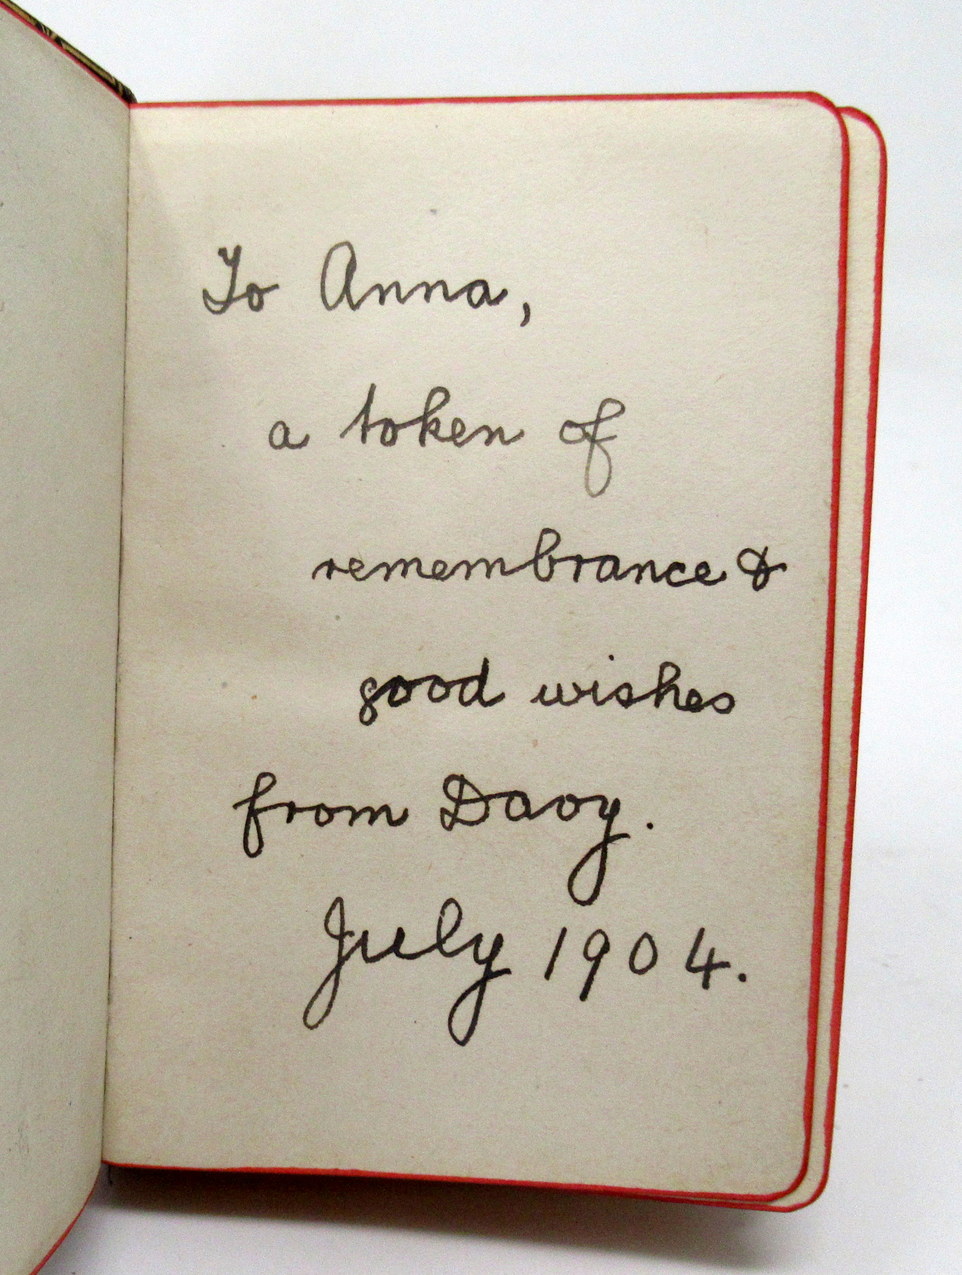 To Anna,
a token of
remembrance &
good wishes
from Davy.
July 1904.